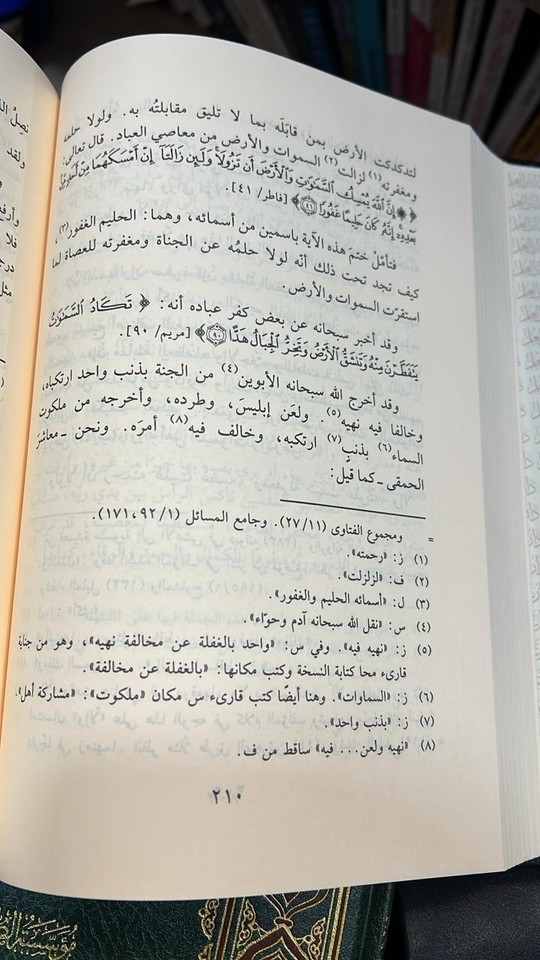 لتدكدكت الأرض بمن قابَلَه بما لا تليق مقابلتُه به. ولولا حلمه
ومغفرته(١) لزالت(٢) السموات والأرض من معاصي العباد. قال تعالى:
﴿ ۞ إِنَّ ٱللَّهَ يُمْسِكُ ٱلسَّمَٰوَٰتِ وَٱلْأَرْضَ أَن تَزُولَا ۚ وَلَئِن زَالَتَآ إِنْ أَمْسَكَهُمَا مِنْ أَحَدٍ مِّنۢ
بَعْدِهِۦٓ ۚ إِنَّهُۥ كَانَ حَلِيمًا غَفُورًا ٤١﴾ [فاطر/ ٤١].
فتأمّلْ ختمَ هذه الآية باسمين من أسمائه، وهما: الحليم الغفور(٣)،
كيف تجد تحت ذلك أنّه لولا حلمُه عن الجناة ومغفرته للعصاة لما
استقرّت السموات والأرض.
وقد أخبر سبحانه عن بعض كفر عباده أنه: ﴿ تَكَادُ ٱلسَّمَٰوَٰتُ
يَتَفَطَّرْنَ مِنْهُ وَتَنشَقُّ ٱلْأَرْضُ وَتَخِرُّ ٱلْجِبَالُ هَدًّا ٩٠﴾ [مريم/ ٩٠].
وقد أخرج الله سبحانه الأبوين(٤) من الجنة بذنب واحد ارتكباه،
وخالفا فيه نهيه(٥). ولعَن إبليسَ، وطرده، وأخرجه من ملكوت
السماء(٦) بذنبٍ(٧) ارتكبه، وخالف فيه(٨) أمرَه. ونحن ـ معاشرَ
الحمقى ـ كما قيل:
= ومجموع الفتاوى (٢٧/١١). وجامع المسائل (٩٢/١، ١٧١).
(١) ز: «رحمته».
(٢) ف: «لزلزلت».
(٣) ل: «أسمائه الحليم والغفور».
(٤) س: «نقل الله سبحانه آدم وحوّاء».
(٥) ز: «نهيه فيه». وفي س: «واحد بالغفلة عن مخالفة نهيه»، وهو من جناية
قارىء محا كتابة النسخة وكتب مكانها: «بالغفلة عن مخالفة».
(٦) ز: «السماوات». وهنا أيضًا كتب قارىء س مكان «ملكوت»: «مشاركة أهل».
(٧) ز: «بذنب واحد».
(٨) «نهيه ولعن... فيه» ساقط من ف.
٢١٠